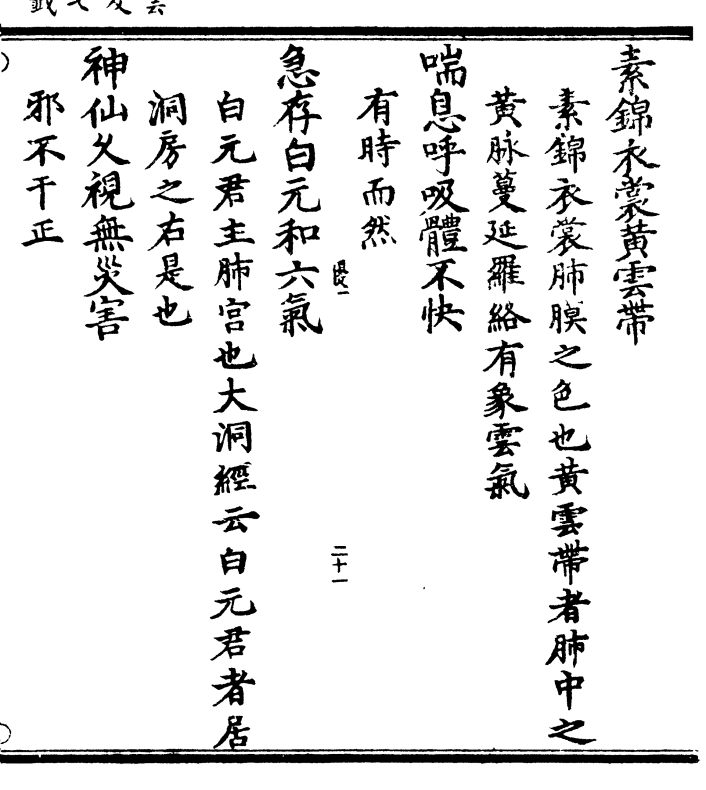 素錦衣裳黃雲帶
素錦衣裳肺膜之色也黃雲帶者肺中之
黃脉蔓延羅絡有象雲氣
喘息呼吸體不快
有時而然
優一
二十一
急存白元和六氣
白元君主肺宮也大洞經云白元君者居
洞房之右是也
神仙久視無災害
邪不干正